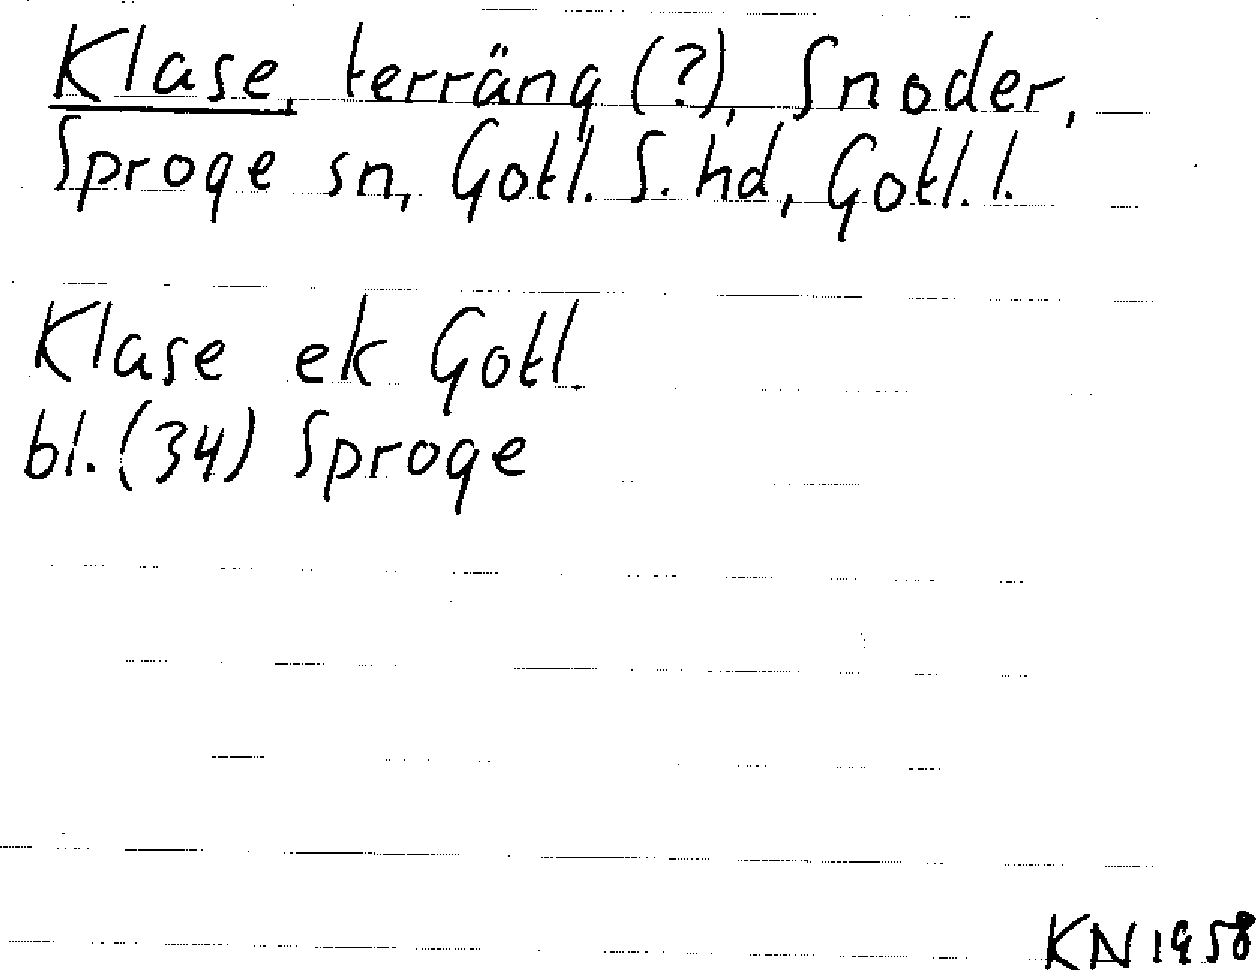 Klase, terräng (?), Snoder,
Sproge sn, Gotl. S. hd, Gotl. l.
Klase ek Gotl.
bl. (34) Sproge
KN 1958